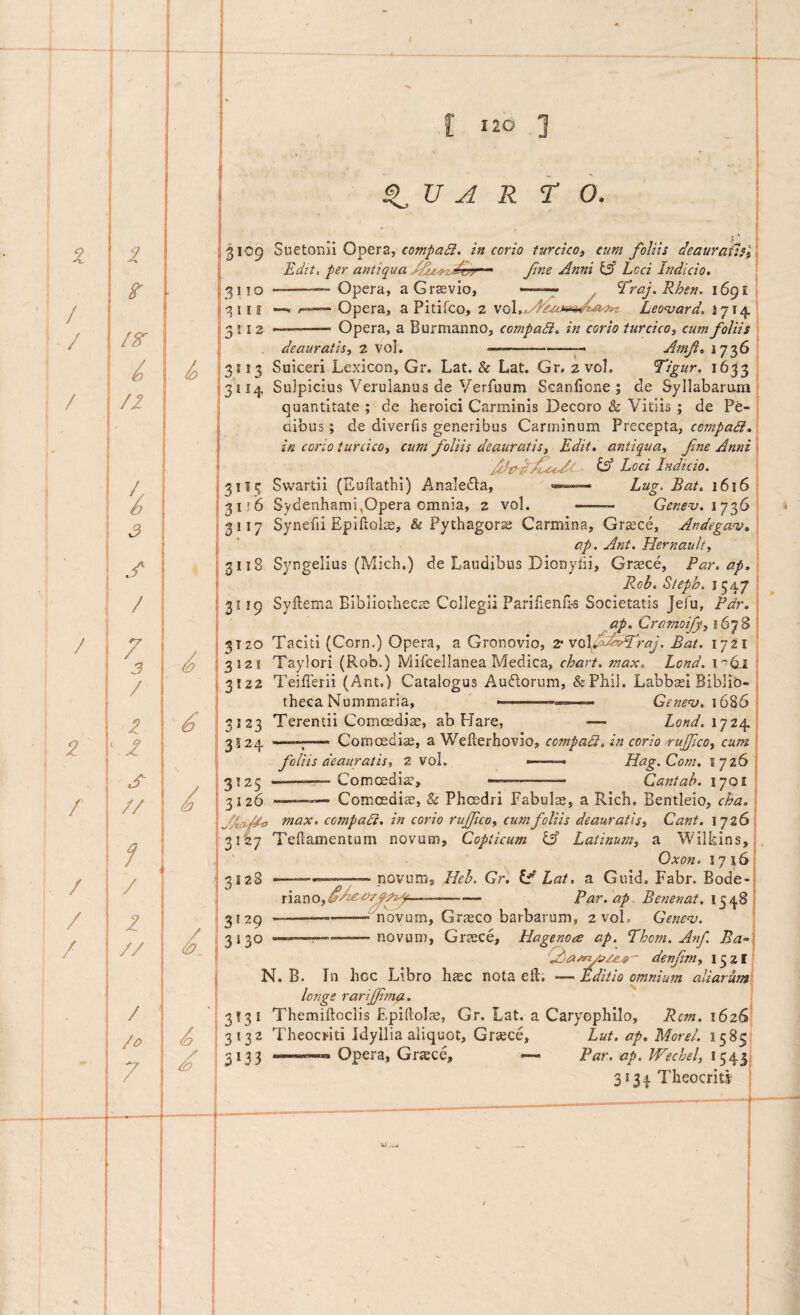 [ 120 ]
QUARTO.
3109 Suetonii Opera, compact. in corio turcico, cum foliis deauratis,
Edit. per antiqua sine Anni & Loci Indicio.
3110 ——— Opera, a Grævio, —— Traj. Rhen. 1691
3111 — —— Opera, a Pitisco, 2 vol. Leovard. 1714
3112 ——— Opera, a Burmanno, compact. in corio turcico, cum foliis
deauratis, 2 vol. ———— Amst. 1736
3113 Suiceri Lexicon, Gr. Lat. & Lat. Gr. 2 vol. Tigur. 1633
3114 Sulpicius Verulanus de Versuum Scansione ; de Syllabarum
quantitate ; de heroici Carminis Decoro & Vitiis ; de Pe-
dibus ; de diversis generibus Carminum Precepta, compact.
in corio turcico, cum foliis deauratis, Edit. antiqua, sine Anni
& Loci Indicio.
3115 Swartii (Eustathi) Analecta, —— Lug. Bat. 1616
3116 Sydenhami Opera omnia, 2 vol. —— Genev. 1736
3117 Synesii Epistolæ, & Pythagoræ Carmina, Græcé, Andegav.
ap. Ant. Hernault,
3118 Syngelius (Mich.) de Laudibus Dionysii, Græce, Par. ap.
Rob. Steph. 1547
3119 Systema Bibliothecæ Collegii Parisiensis Societatis Jesu, Par.
ap. Cramoisy, 1678
3120 Taciti (Corn.) Opera, a Gronovio, 2 vol. Traj. Bat. 1721
3121 Taylori (Rob.) Miscellanea Medica, chart. max. Lond. 1761
3122 Teisserii (Ant.) Catalogus Auctorum, & Phil. Labbæi Biblio-
theca Nummaria, ———— Genev. 1686
3123 Terentii Comœdiæ, ab Hare, — Lond. 1724
3124 ——— Comœdiæ, a Westerhovio, compact. in corio russico, cum
foliis deauratis, 2 vol. —— Hag. Com. 1726
3125 ——— Comœdiæ, ———— Cantab. 1701
3126 ——— Comœdiæ, & Phœdri Fabulæ, a Rich. Bentleio, cha.
max. compact. in corio russico, cum foliis deauratis, Cant. 1726
3127 Testamentum novum, Copticum & Latinum, a Wilkins,
Oxon. 1716
3128 ———— novum, Heb. Gr. & Lat. a Guid. Fabr. Bode-
riano, ——— Par. ap. Benenat. 1548
3129 ———— novum, Græco barbarum, 2 vol. Genev.
3130 ———— novum, Græcé, Hagenoæ ap. Thom. Ans. Ba-
densim, 1521
N. B. In hoc Libro hæc nota est. — Editio omnium aliarum
longe rarissima.
3131 Themistoclis Epistolæ, Gr. Lat. a Caryophilo, Rom. 1626
3132 Theocriti Idyllia aliquot, Græcé, Lut. ap. Morel. 1585
3133 ——— Opera, Græcé, — Par. ap. Wechel, 1543
3134 Theocriti